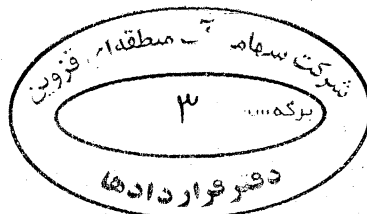 شرکت سهامی آب منطقه‌ای قزوین
برگه.....۳
دفتر قراردادها